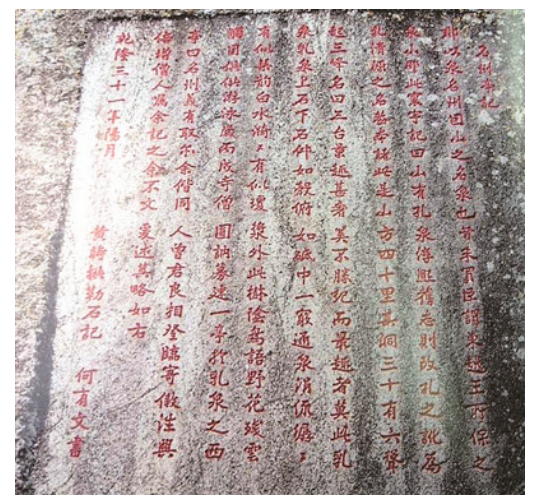 名州亭記
郡以泉名州因山之名泉也昔朱買臣謂東越王所保之
泉山即此寰宇記曰山有孔泉舊志則改孔之訛為
乳清源之名甚諸此是山方四十里其洞三十有六聳
起三峰名曰三台景趣甚奢美不勝紀而景越者莫此乳
泉乳泉上石下石仰如殺俯如砥中一竅通泉涓流潺〻
有似葉韵白水漪〻有似瓊漿外此樹陰鳥語野花殘雲
觸目俱供游泳歲丙戌寺僧圓訥募建一亭於乳泉之西
亭曰名州義有取尔余偕同人曾君良相登臨寄傲往興
倍增僧人屬余記之余不文爰述其略如右
乾隆三十一年陽月 黃勒石記 何有文書